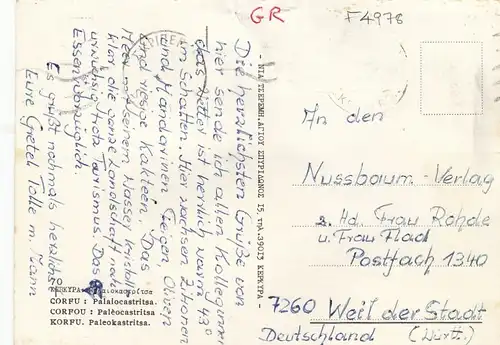 GR
F4978
Die herzlichsten Grüße von
hier sende ich allen Kolleginnen
das Wetter ist herrlich warm 43°
im Schatten. Hier wachsen Zitronen
und Mandarinen Feigen, Oliven
und riesige Kakteen. Das
Meer mit seinem Wasser kristall
klar, die ganze Landschaft noch
urwüchsig trotz Tourismus. Das
Essen vorzüglich.
Es grüßt nochmals herzlichst
Eure Gretel Tolle m. Mann
ΝΙΑ ΤΣΕΡΕΜΗ, ΑΓΙΟΥ ΣΠΥΡΙΔΩΝΟΣ 15, τηλ. 39013 ΚΕΡΚΥΡΑ -
An den
Nussbaum-Verlag
z. Hd. Frau Rohde
u. Frau Flad
Postfach 1340
7260 Weil der Stadt
Deutschland (Württ.)
70
ΚΕΡΚΥΡΑ: Παλαιοκαστρίτσα
CORFU: Palaiocastritsa.
CORFOU: Palèocastritsa
KORFU. Paleokastritsa.